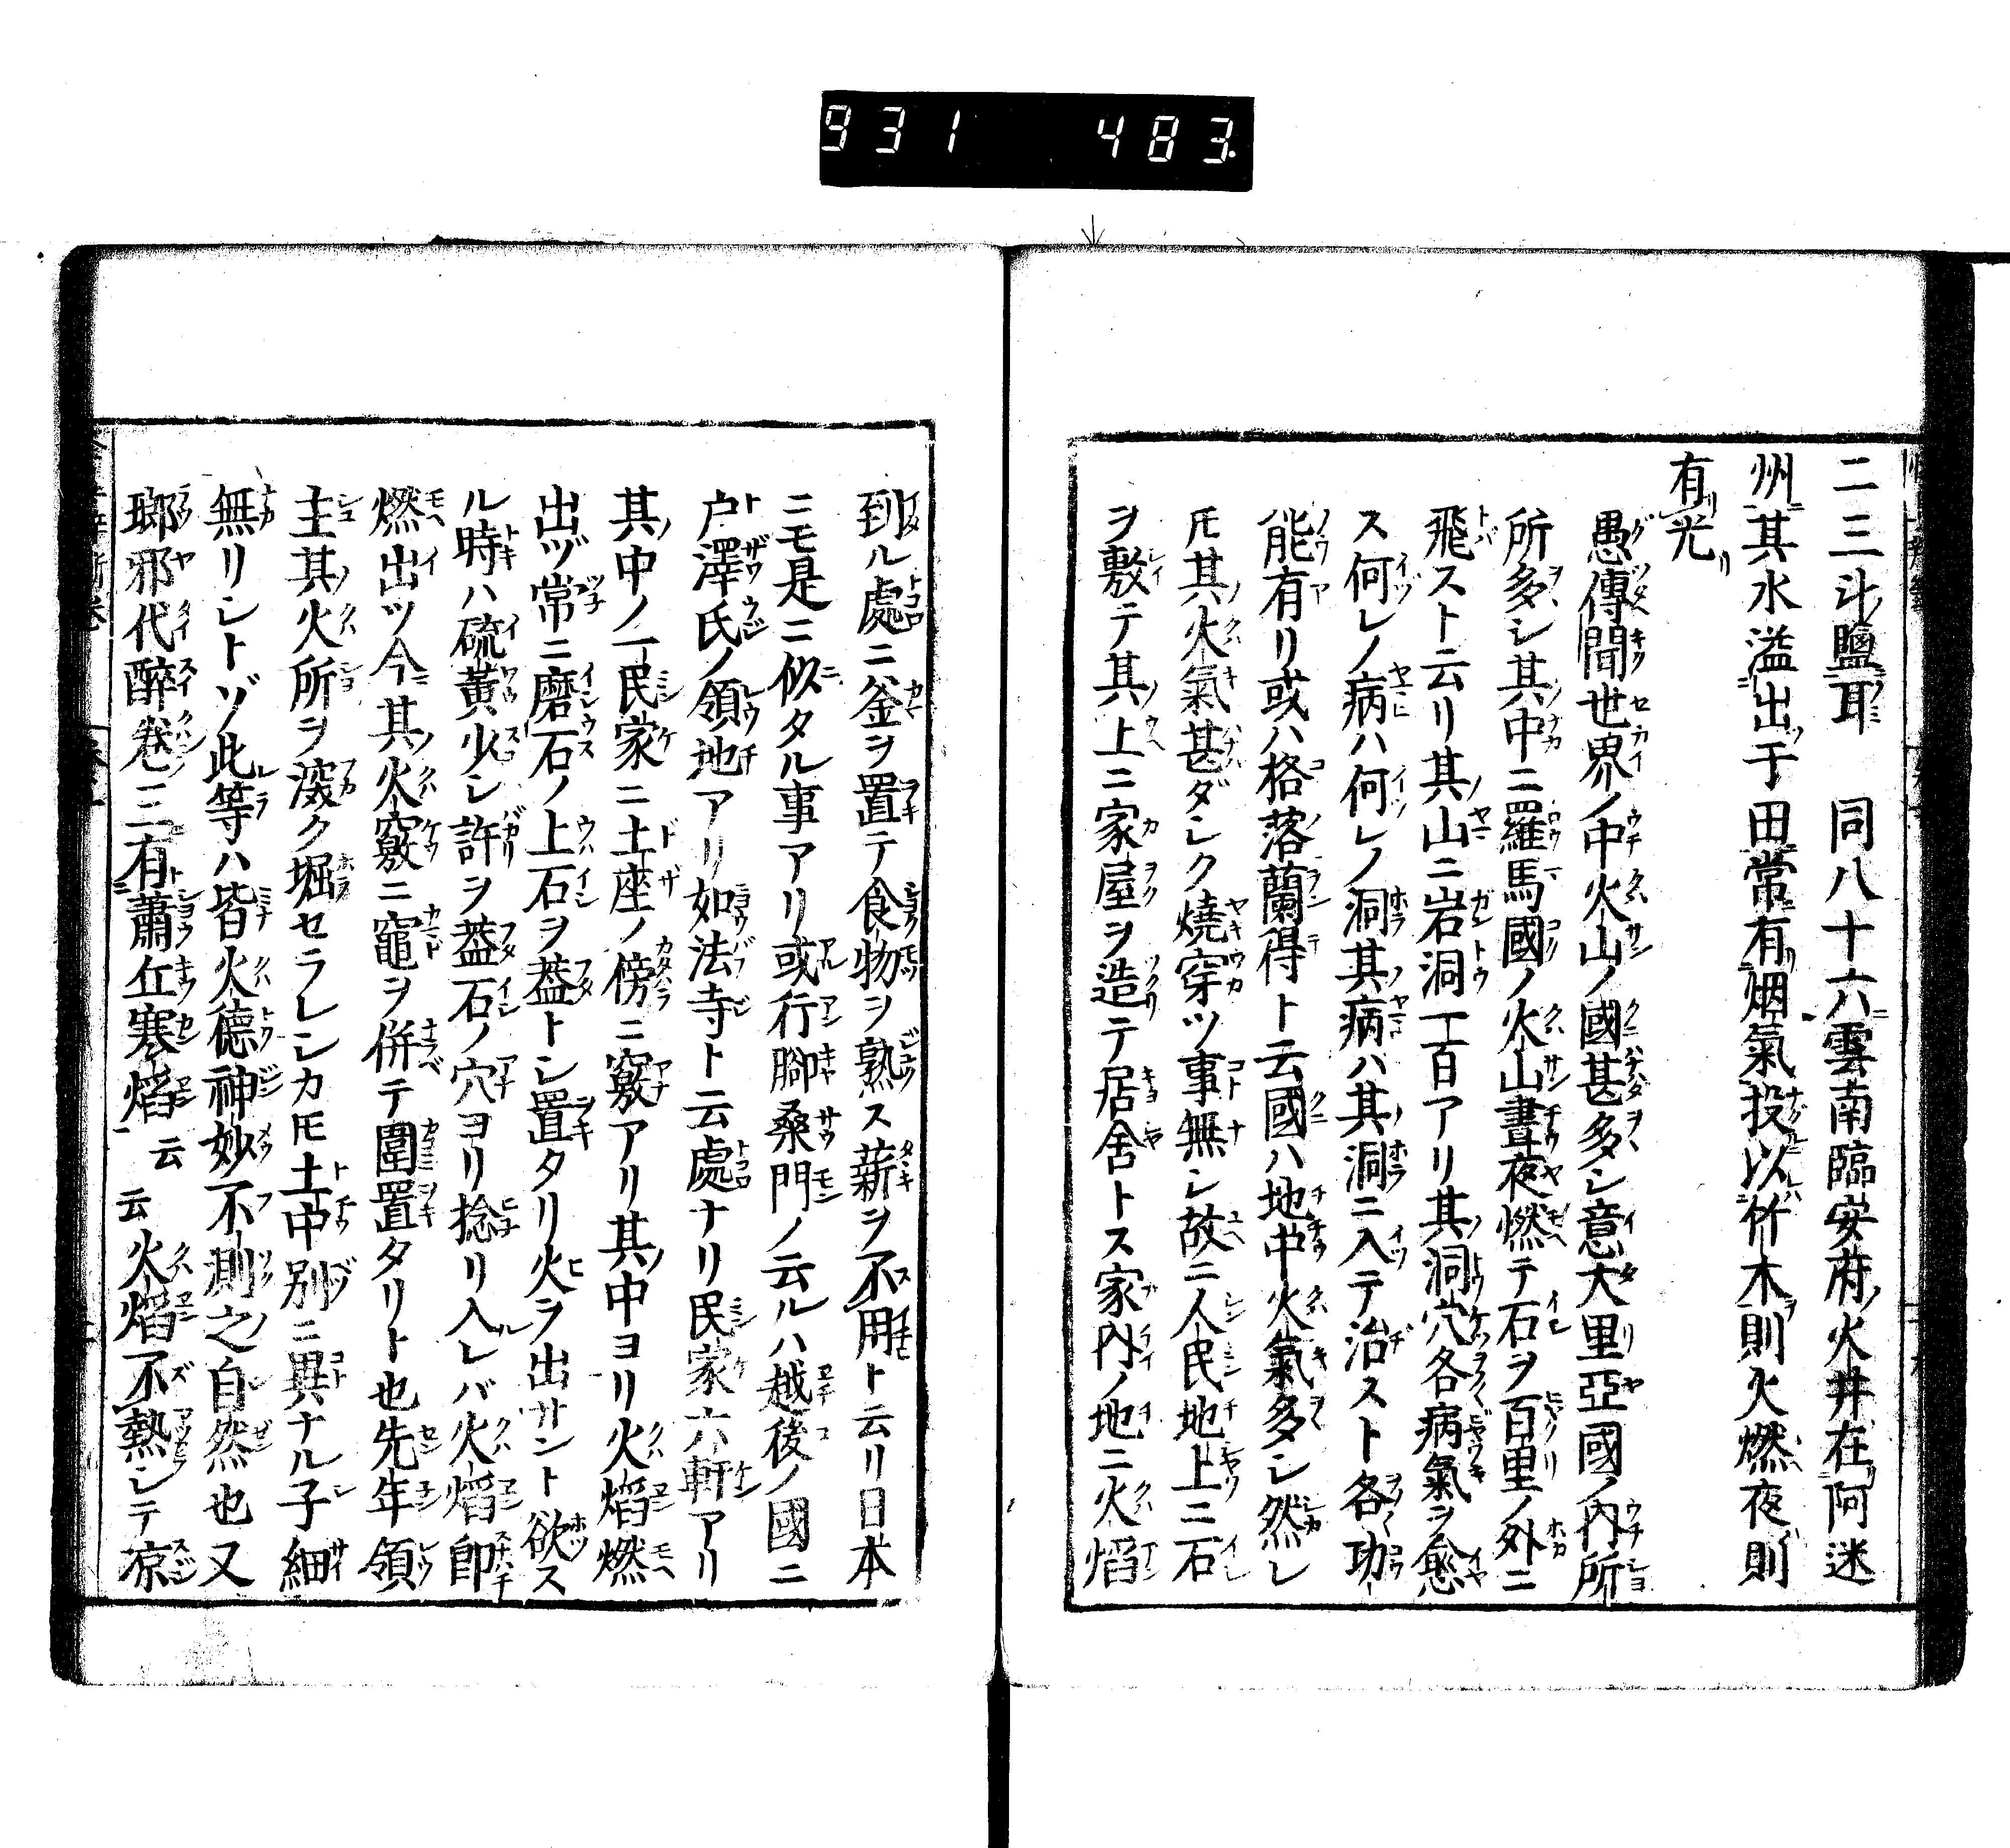 931 483.
二三斗鹽耳　同八十六雲南臨安府火井在阿迷
州其水溢出于田常有烟氣投以竹木則火燃夜則
有光
愚傳聞世界ノ中火山ノ國甚多シ意大里亞國ノ內所
所多シ其中ニ羅馬國ノ火山晝夜燃テ石ヲ百里ノ外ニ
飛スト云リ其山ニ岩洞一百アリ其洞穴各病氣ヲ愈
ス何レノ病ハ何レノ洞其病ハ其洞ニ入テ治スト各功
能有リ或ハ格落蘭得ト云國ハ地中火氣多シ然レ
𪜈其火氣甚ダシク燒穿ツ事無シ故ニ人民地上ニ石
ヲ敷テ其上ニ家屋ヲ造テ居舍トス家內ノ地ニ火熖
到ル處ニ釜ヲ置テ食物ヲ熟ス薪ヲ不用ト云リ日本
ニモ是ニ似タル事アリ或行腳桑門ノ云ルハ越後ノ國ニ
戸澤氏ノ領地アリ如法寺ト云處ナリ民家六軒アリ
其中ノ一民家ニ土座ノ傍ニ竅アリ其中ヨリ火熖燃
出ヅ常ニ磨石ノ上石ヲ葢トシ置タリ火ヲ出サント欲ス
ル時ハ硫黃少シ許ヲ葢石ノ穴ヨリ捻リ入レバ火熖卽
燃出ツ今其火竅ニ竈ヲ併テ圍置タリト也先年領
主其火所ヲ深ク堀セラレシカ𪜈土中別ニ異ナル子細
無リシトゾ此等ハ皆火德神妙不測之自然也又
瑯邪代醉卷三有蕭丘寒熖云云火熖不熱シテ凉